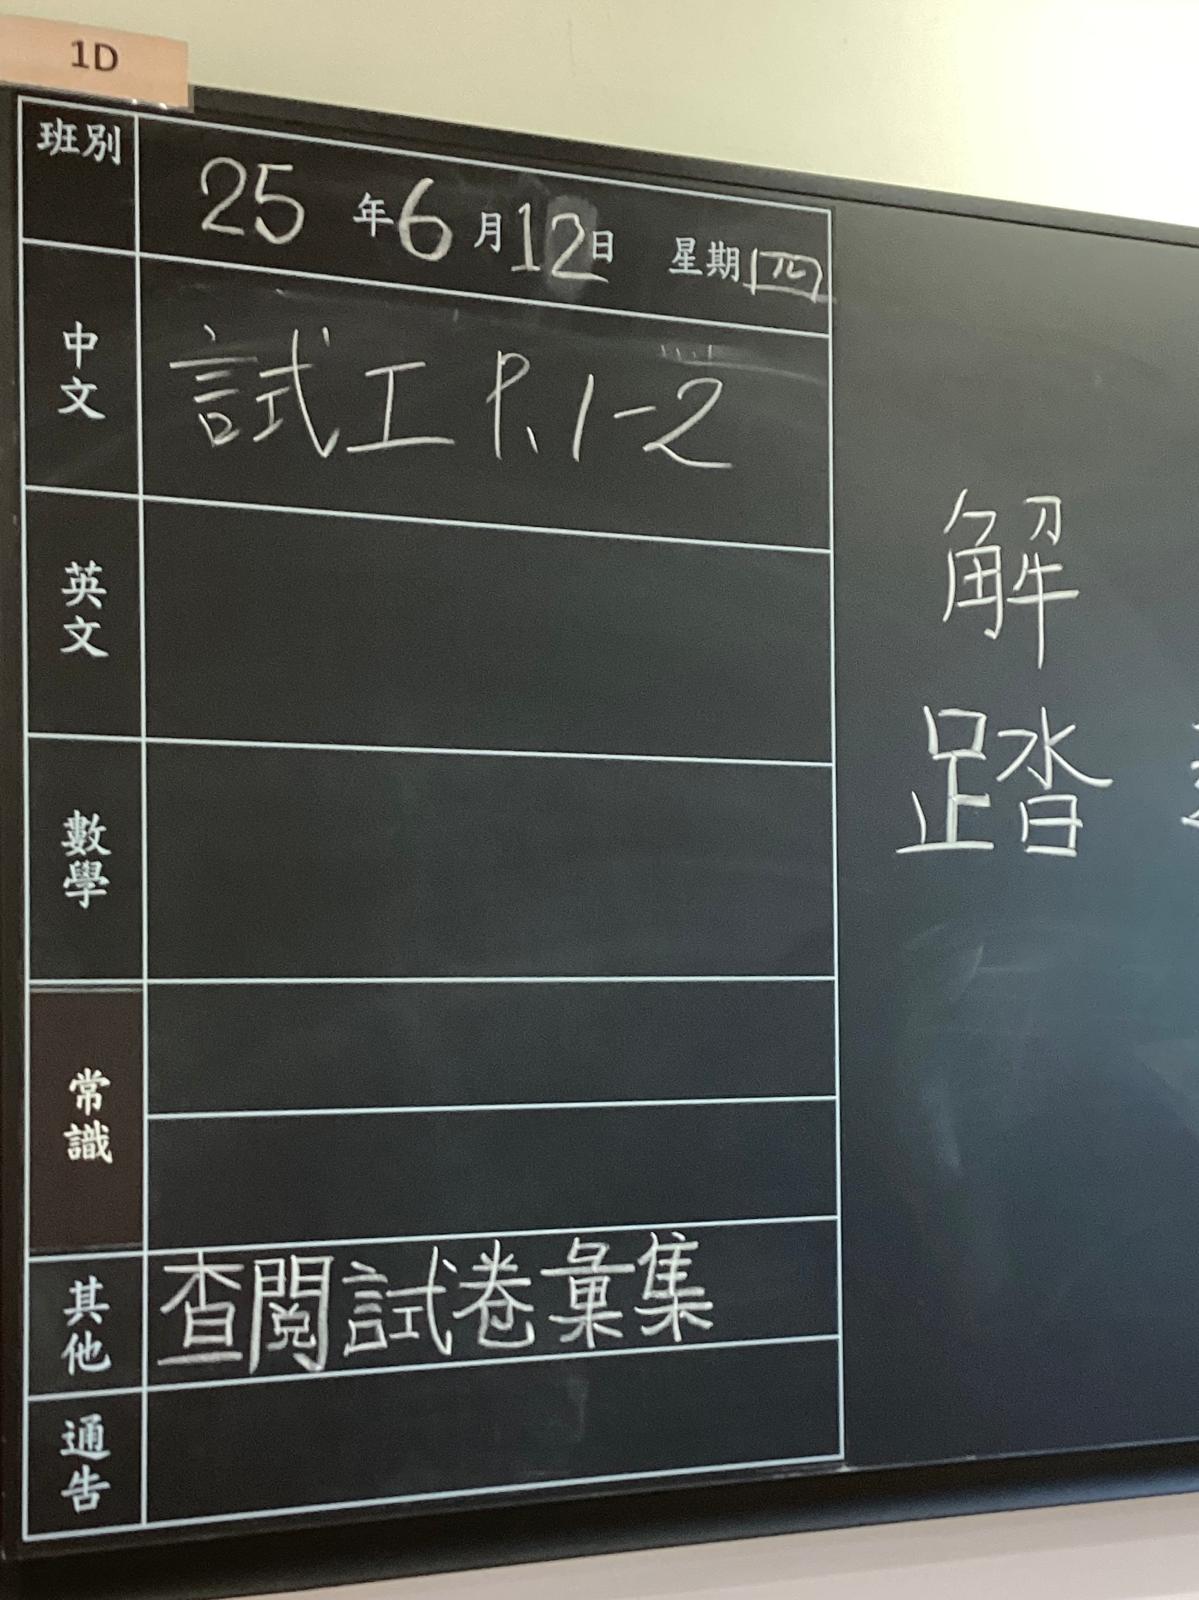 1D
班別
25年6月12日 星期四
中文
試工 P.1-2
英文
數學
常識
其他
查閱試卷彙集
通告
解
踏